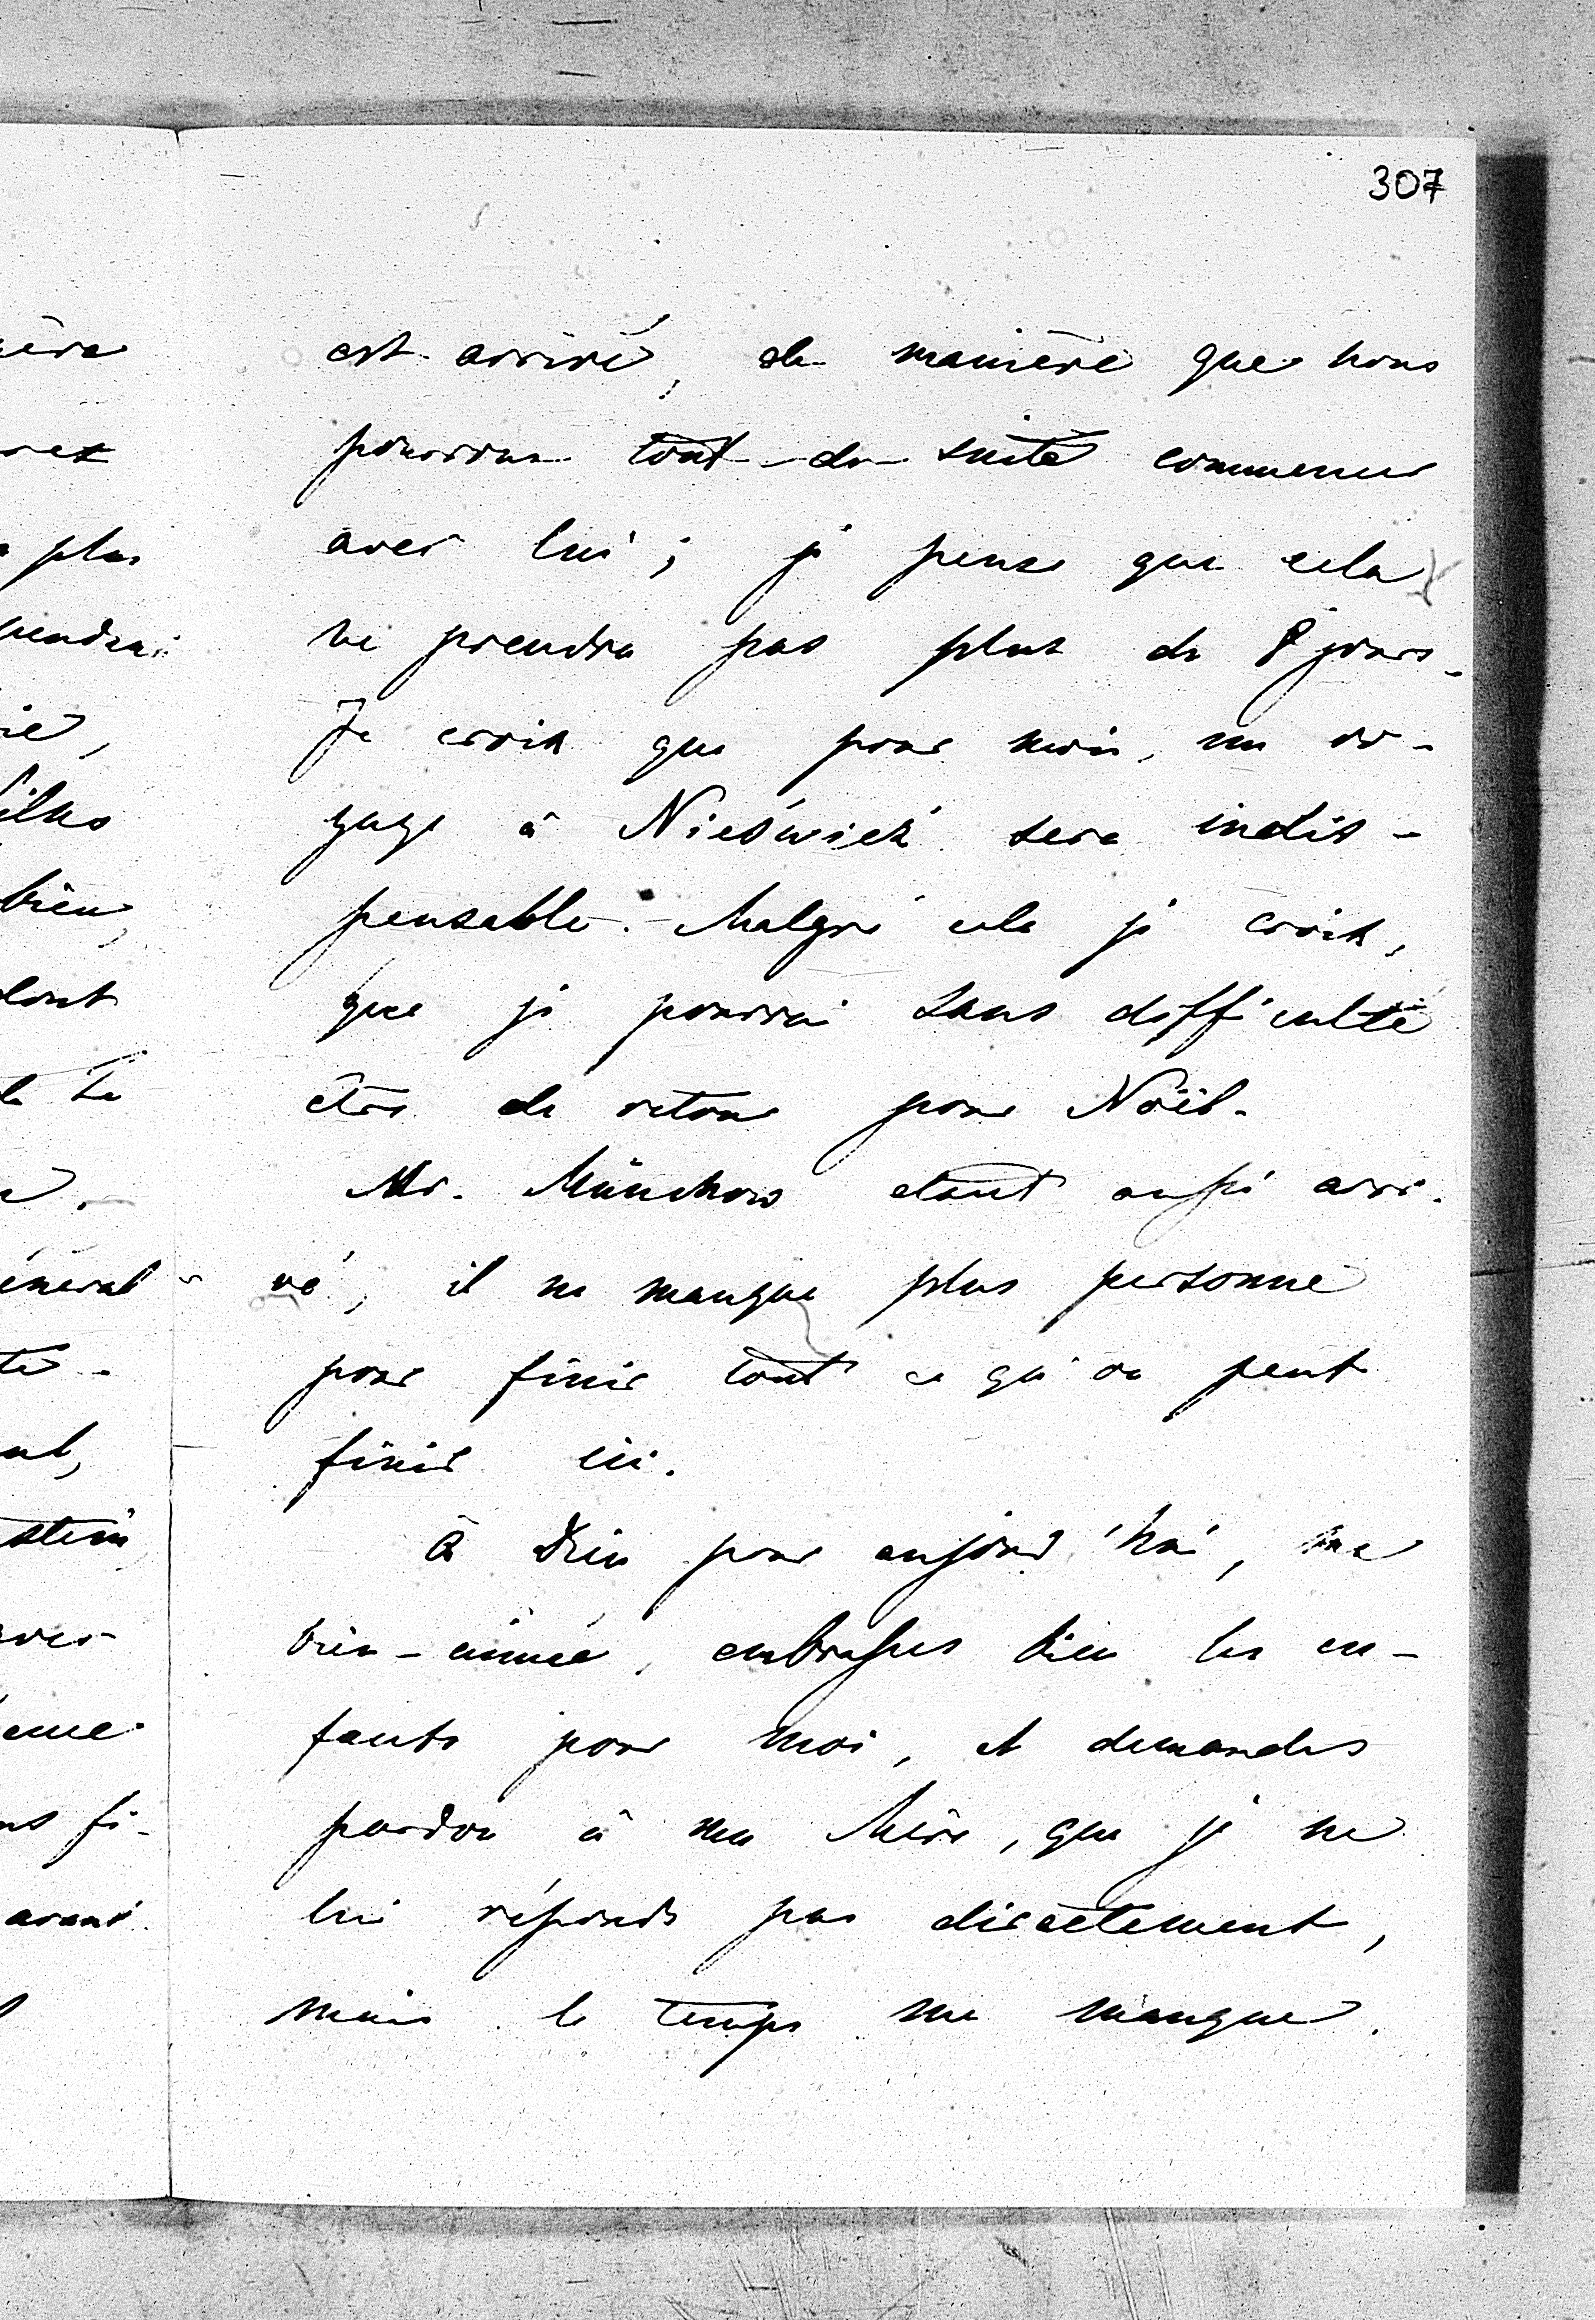 307
est arrivé, de manière que nous
pourrons tout de suite commencer
avec lui; je pense que cela
ne prendra pas plus de 8 jours.
Je crois que pour moi, un vo-
yage à Nieświeź sera indis-
pensable. Malgré cela je crois,
que je pourrai sans difficulté
être de retour pour Noël.
Mr. Münchow étant aussi arri-
vé, il ne manque plus personne
pour finir tout ce qu'on peut
finir ici.
à Dieu pour aujourd'hui, ma
bien-aimée, embrasses bien les en-
fants pour moi, et demandes
pardon à ma Mère, que je ne
lui réponds pas directement,
mais le temps me manque.
plus
bien,
avant